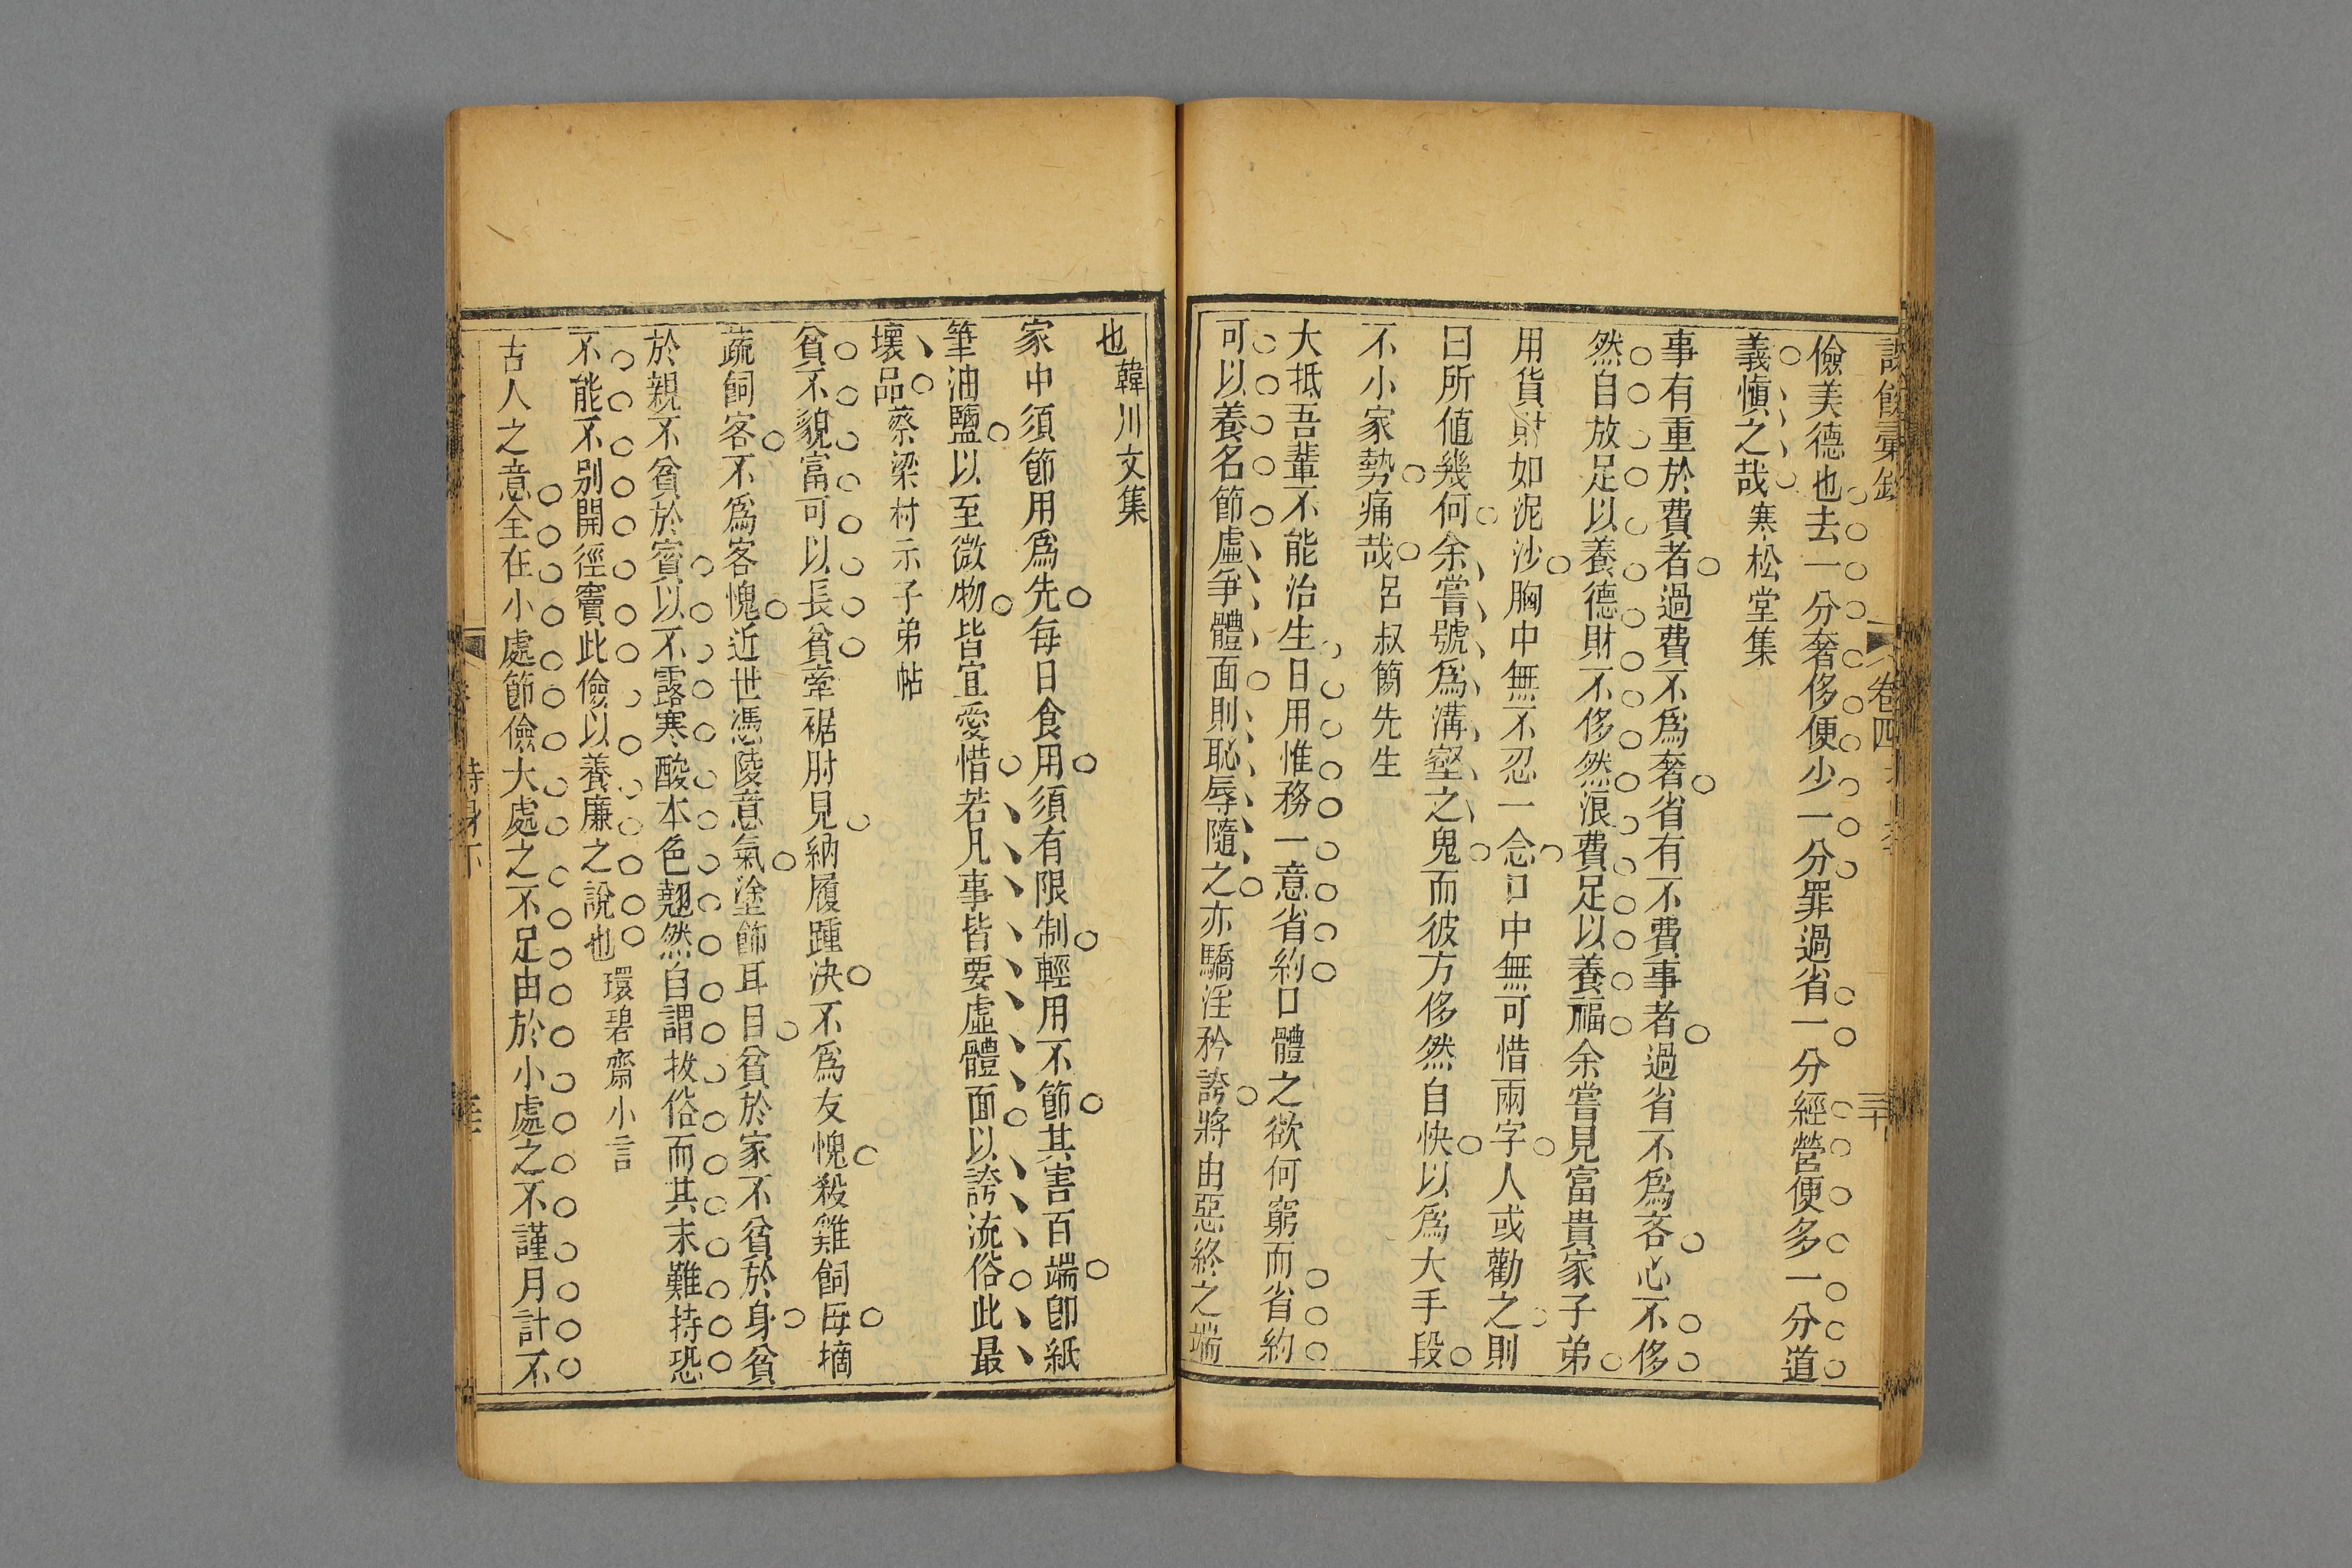 儉美德也去一分奢侈便少一分罪過省一分經營便多一分道
義愼之哉寒松堂集
事有重於費者過費不爲奢省有不費事者過省不爲吝心不侈
然自放足以養德財不侈然浪費足以養福余嘗見富貴家子弟
用貨財如泥沙胸中無不忍一念口中無可惜兩字人或勸之則
曰所値幾何余嘗號爲溝壑之鬼而彼方侈然自快以爲大手段
不小家勢痛哉呂叔簡先生
大抵吾輩不能治生日用惟務一意省約口體之欲何窮而省約
可以養名節虛爭體面則恥辱隨之亦驕淫矜誇將由惡終之端
也韓川文集
家中須節用爲先每日食用須有限制輕用不節其害百端卽紙
筆油鹽以至微物皆宜愛惜若凡事皆要虛體面以誇流俗此最
壞品蔡梁村示子弟帖
貧不貌富可以長貧牽裾肘見納履踵決不爲友愧殺雞飼母摘
蔬飼客不爲客愧近世憑陵意氣塗飾耳目貧於家不貧於身貧
於親不貧於賓以不露寒酸本色翹然自謂拔俗而其末難持恐
不能不別開徑竇此儉以養廉之說也環碧齋小言
古人之意全在小處節儉大處之不足由於小處之不謹月計不
卷四
三十
持身下